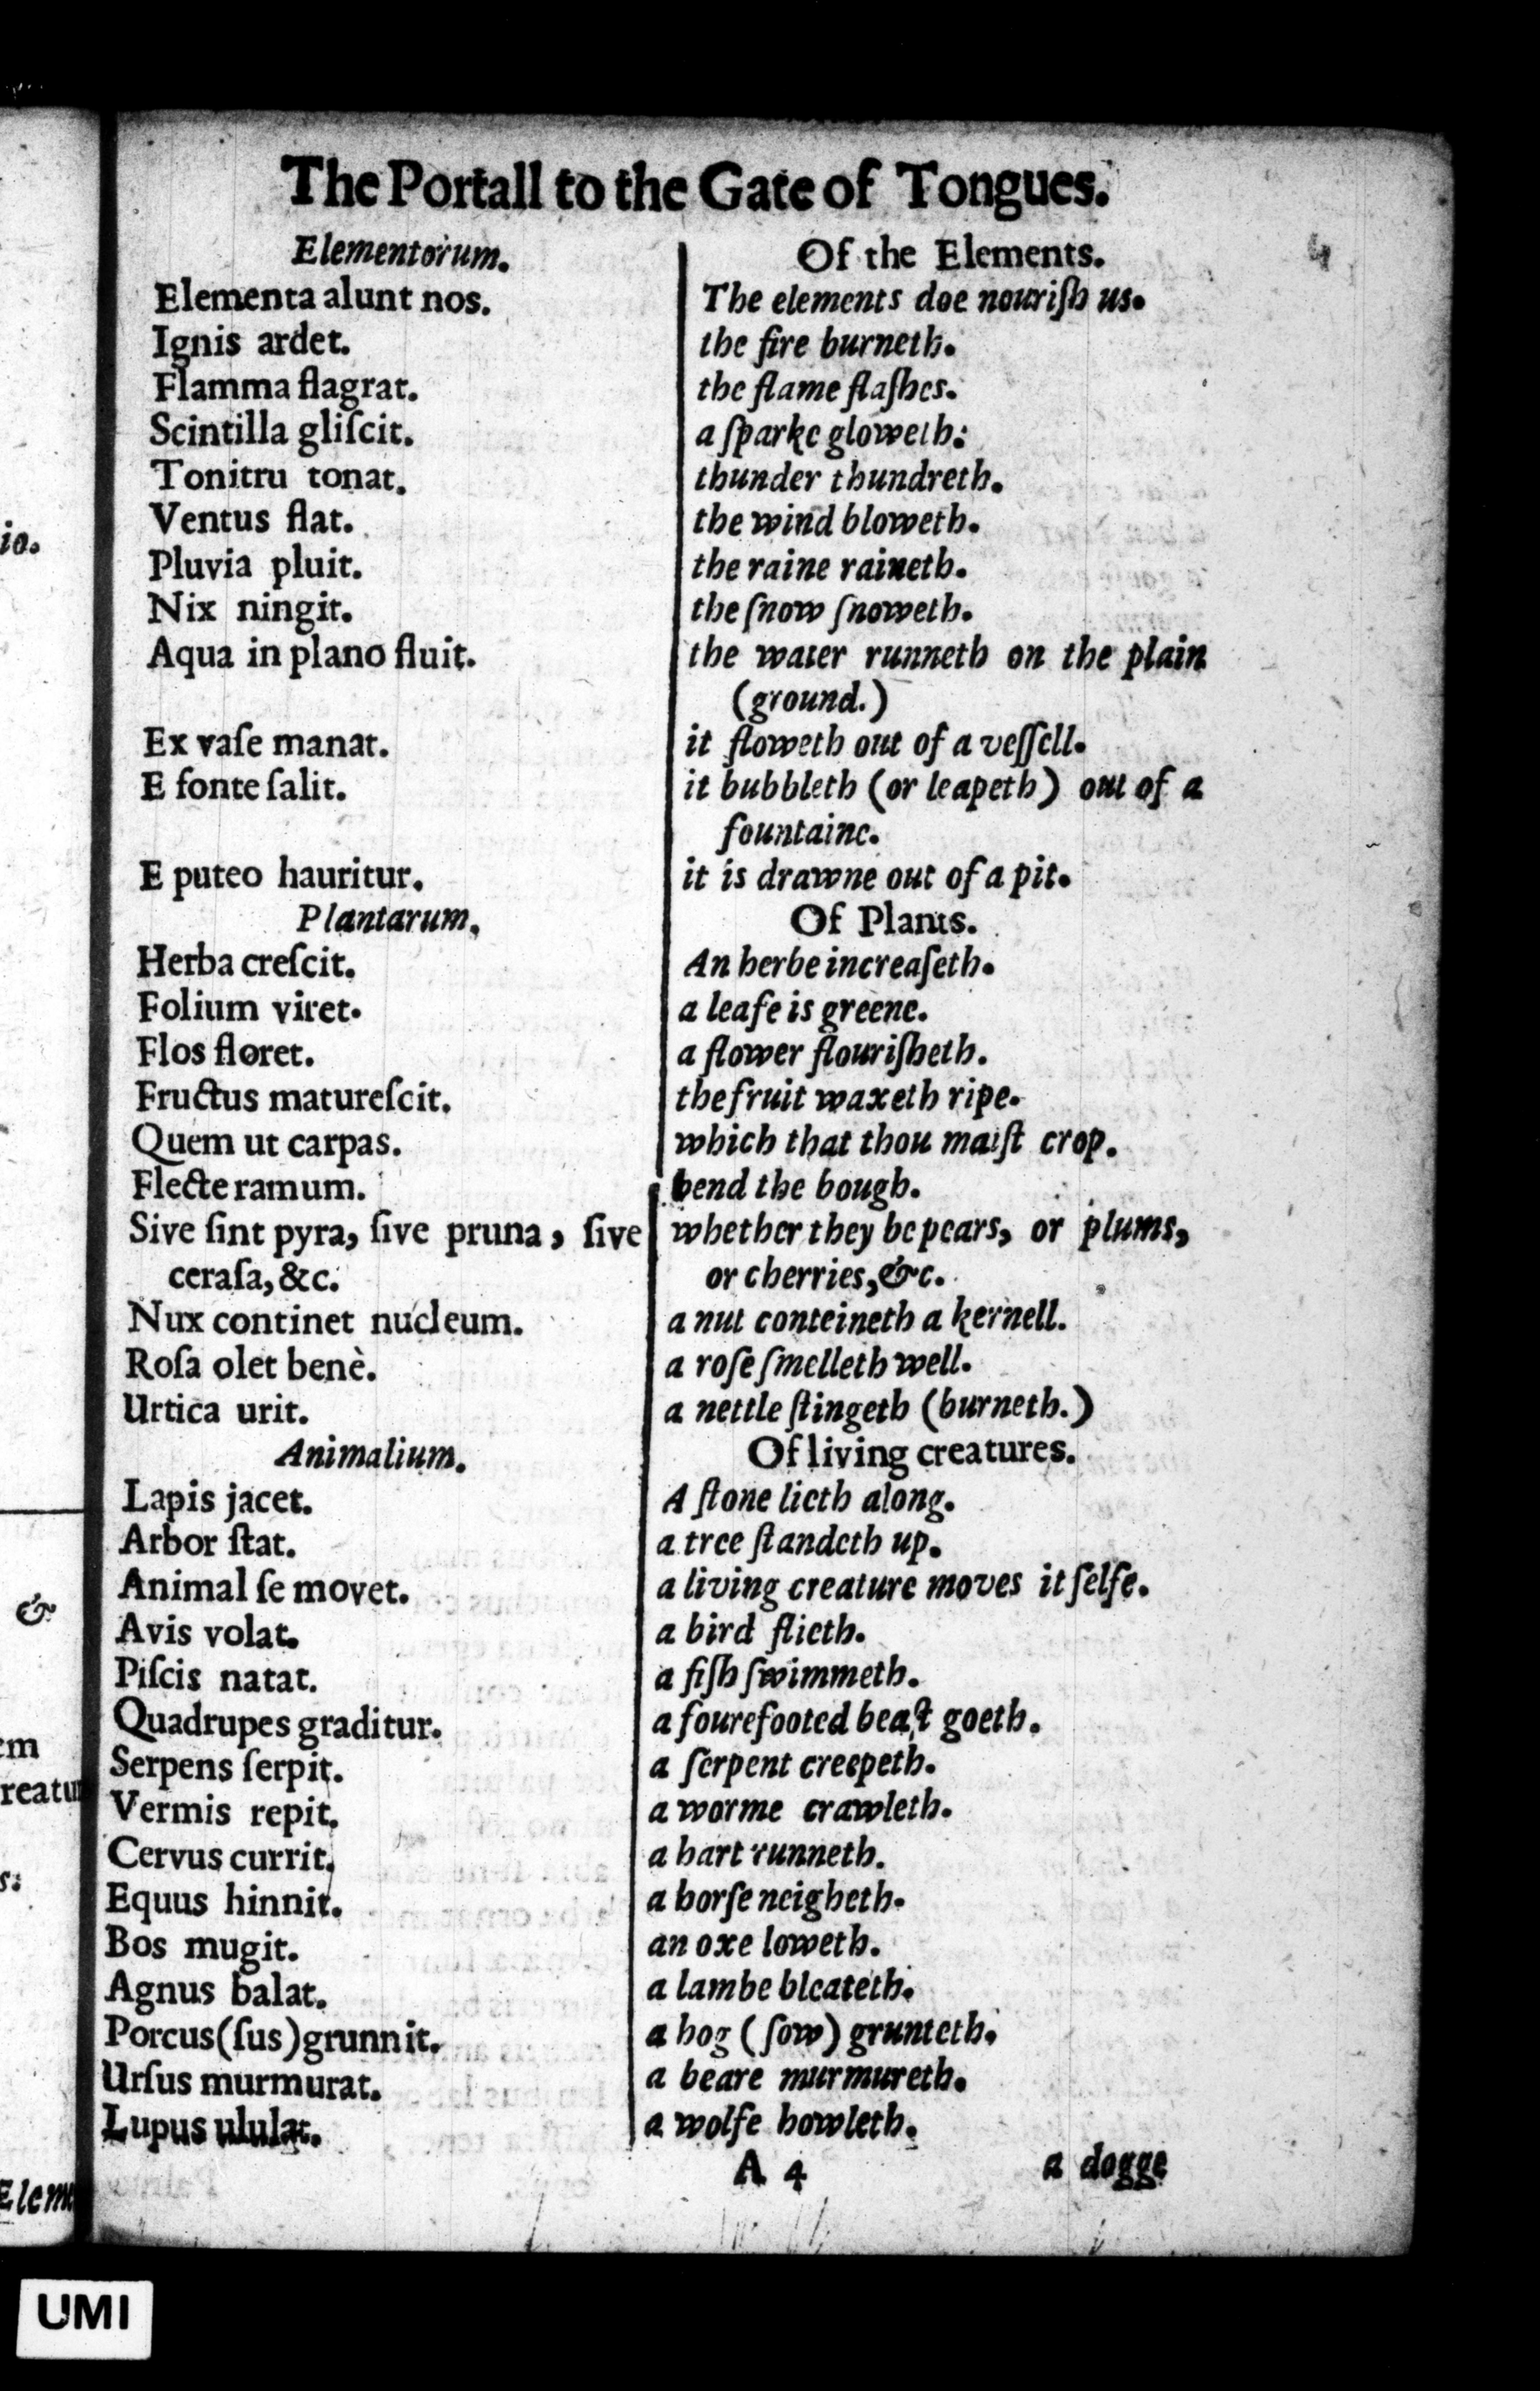 The Portall to the Gate of Tongues.
Elementorum.
Elementa alunt nos.
Ignis ardet.
Flamma flagrat.
Scintilla gliſcit.
Tonitru tonat.
Ventus flat.
Pluvia pluit.
Nix ningit.
Aqua in plano fluit.
Ex vaſe manat.
E fonte ſalit.
E puteo hauritur.
Plantarum.
Herba creſcit.
Folium viret.
Flos floret.
Fructus matureſcit.
Quem ut carpas.
Flecte ramum.
Sive ſint pyra, ſive pruna, ſive
ceraſa, &c.
Nux continet nucleum.
Roſa olet benè.
Urtica urit.
Animalium.
Lapis jacet.
Arbor ſtat.
Animal ſe movet.
Avis volat.
Piſcis natat.
Quadrupes graditur.
Serpens ſerpit.
Vermis repit.
Cervus currit.
Equus hinnit.
Bos mugit.
Agnus balat.
Porcus (ſus) grunnit.
Urſus murmurat.
Lupus ululat.
Of the Elements.
The elements doe nouriſh us.
the fire burneth.
the flame flaſhes.
a ſparke gloweth:
thunder thundreth.
the wind bloweth.
the raine raineth.
the ſnow ſnoweth.
the water runneth on the plain
(ground.)
it floweth out of a veſſell.
it bubbleth (or leapeth) out of a
fountaine.
it is drawne out of a pit.
Of Plants.
An herbe increaſeth.
a leafe is greene.
a flower flouriſheth.
the fruit waxeth ripe.
which that thou maiſt crop.
bend the bough.
whether they be pears, or plums,
or cherries, &c.
a nut conteineth a kernell.
a roſe ſmelleth well.
a nettle ſtingeth (burneth.)
Of living creatures.
A ſtone lieth along.
a tree ſtandeth up.
a living creature moves it ſelfe.
a bird flieth.
a fiſh ſwimmeth.
a fourefooted beaſt goeth.
a ſerpent creepeth.
a worme crawleth.
a hart runneth.
a horſe neigheth.
an oxe loweth.
a lambe bleateth.
a hog (ſow) grunteth.
a beare murmureth.
a wolfe howleth.
A 4
a dogge
4
io.
&
UMI